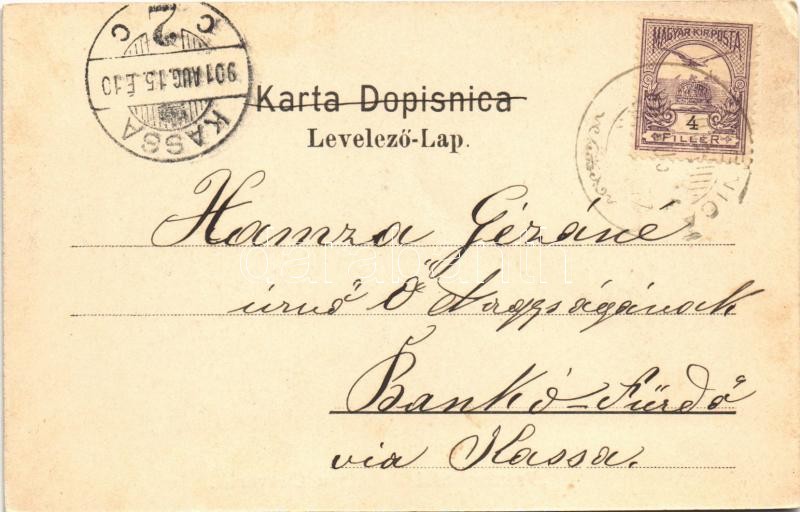 C 2 C
901 AUG. 15. É. 10
KASSA
MAGYAR KIR. POSTA
4
FILLÉR
Karta Dopisnica
Levelező-Lap.
Hamza Gézáné
úrnő Ő Nagyságának
Bankó-Fürdő
via Kassa.
darabanth